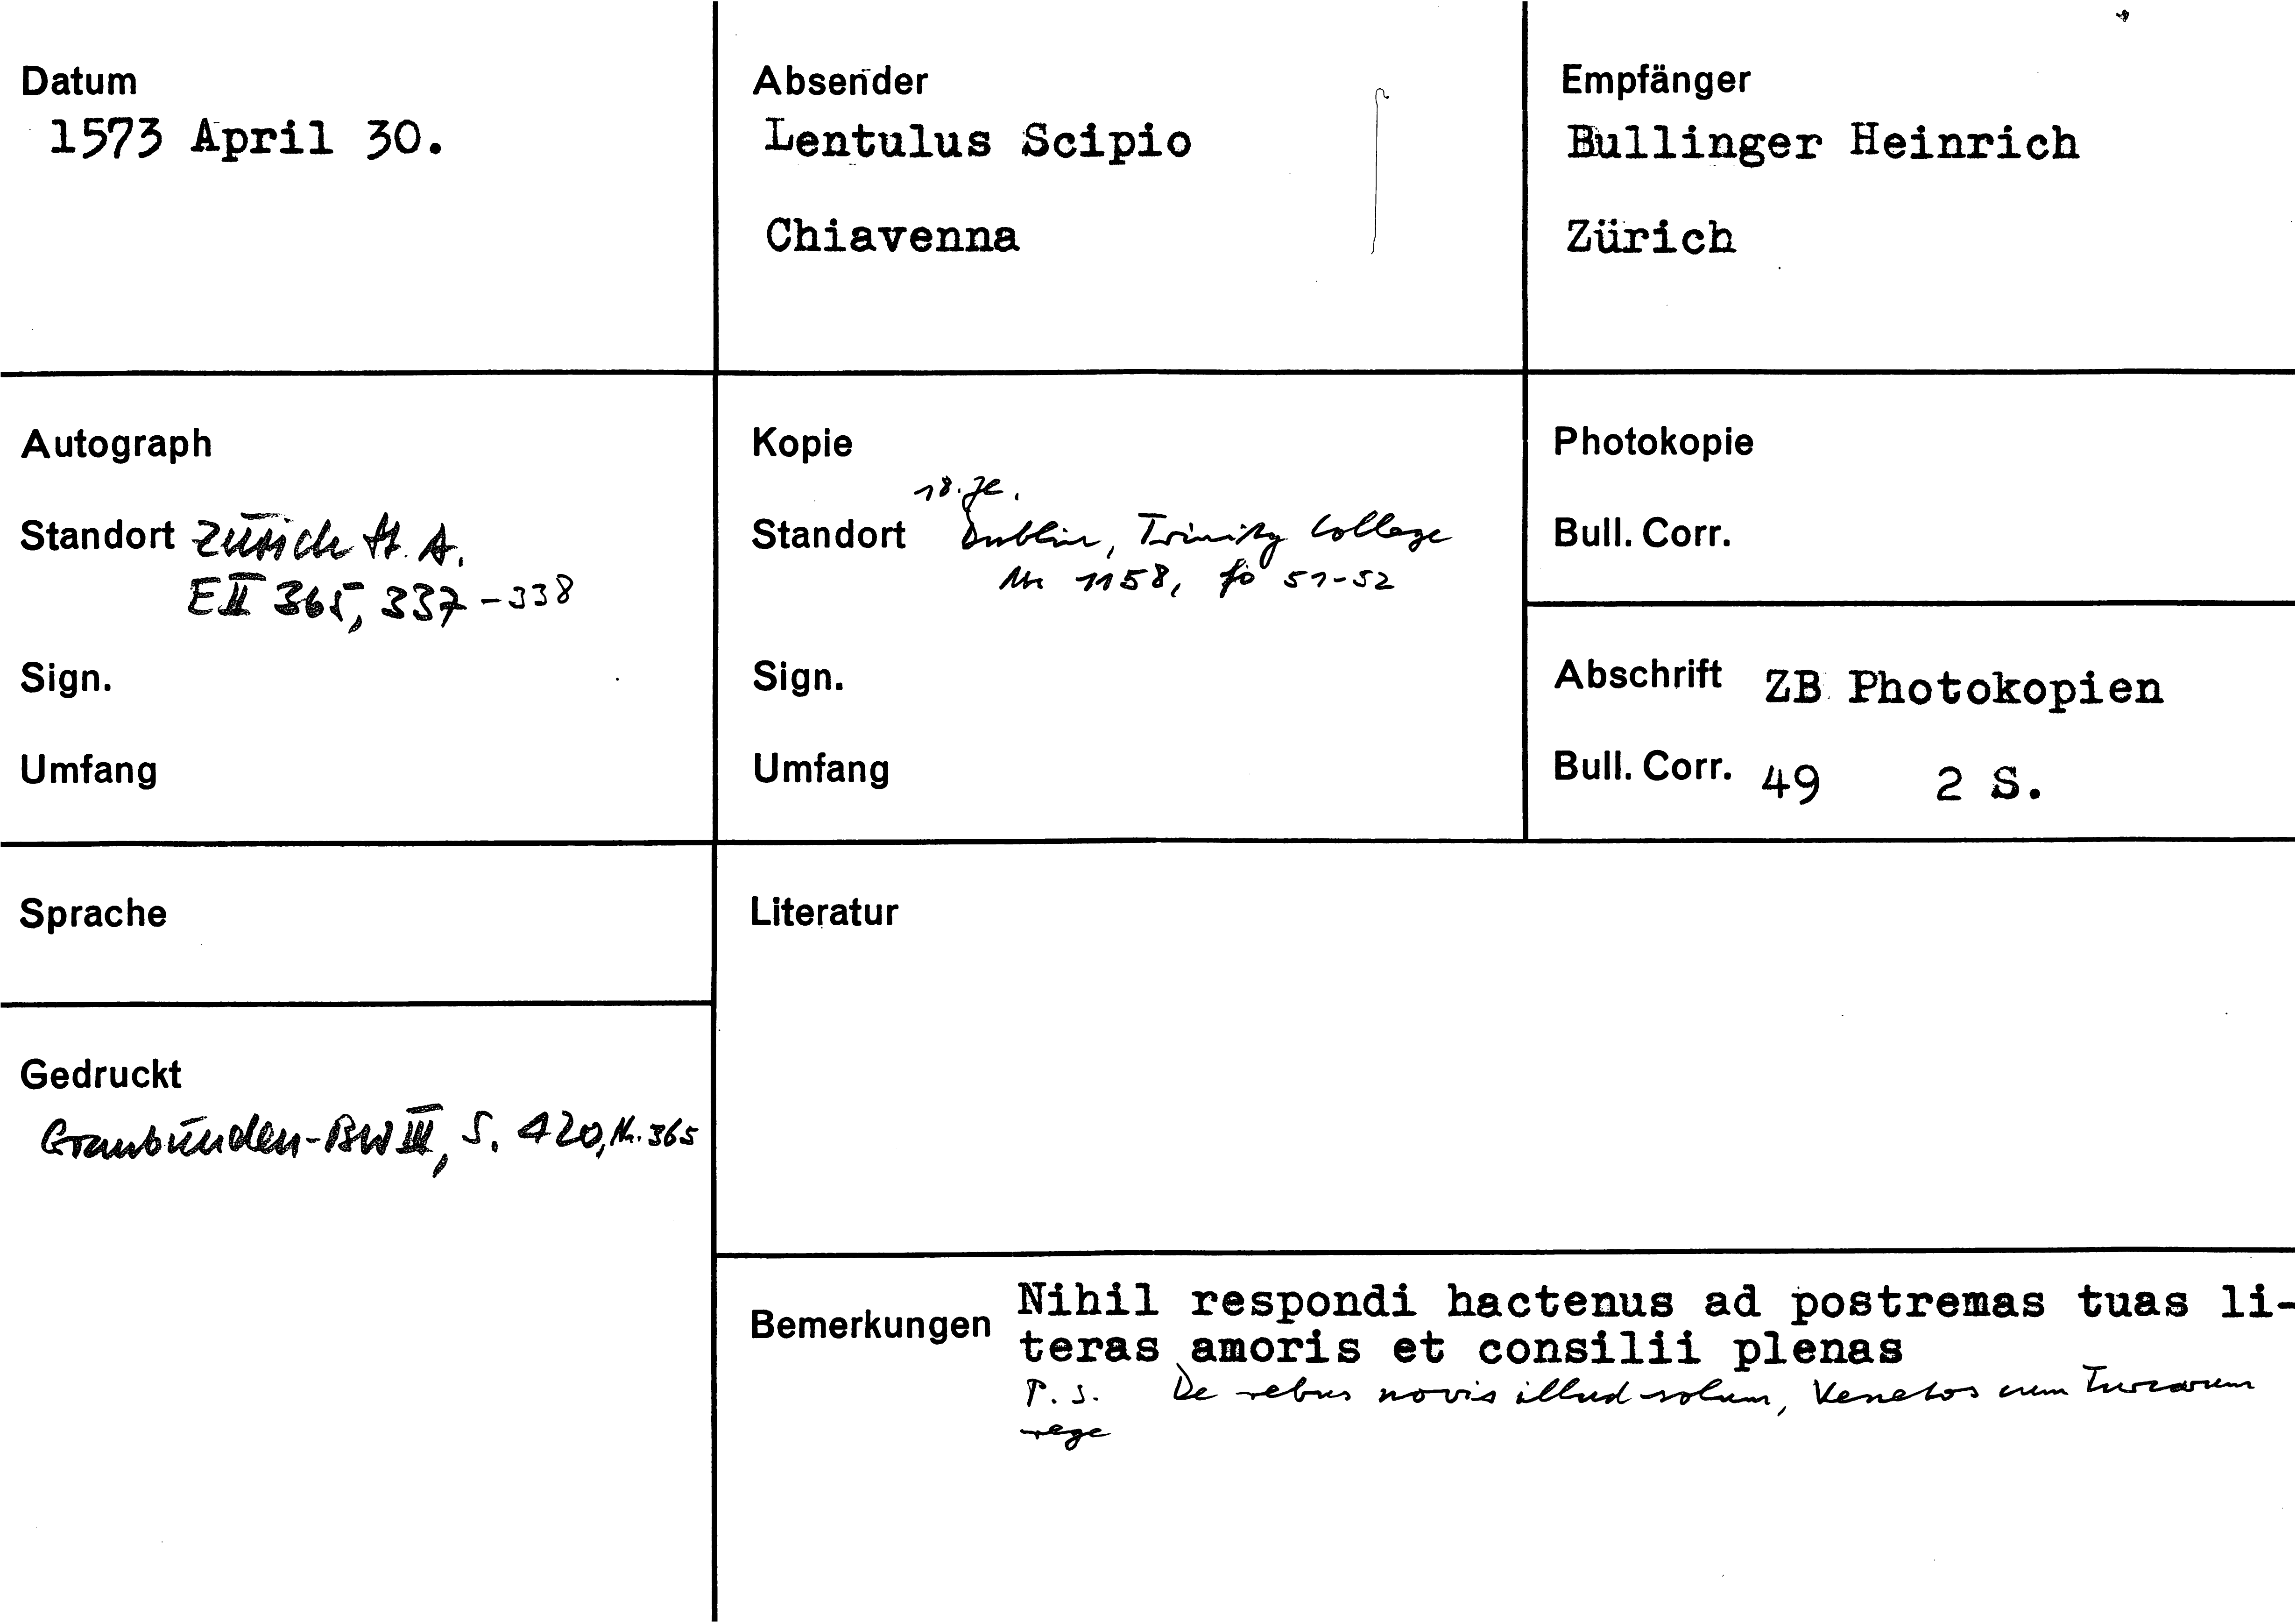 Datum
1573 April 30.
Absender
Lentulus Scipio
Chiavenna
Empfänger
Bullinger Heinrich
Zürich
Autograph
Standort Zürich St. A.
E II 365, 337-338
Sign.
Umfang
Kopie
18. Jh.
Standort Dublin, Trinity College
Nr 1158, fo 51-52
Sign.
Umfang
Photokopie
Bull. Corr.
Abschrift ZB Photokopien
Bull. Corr. 49 2 S.
Sprache
Literatur
Gedruckt
Graubünden-BW III, S. 420, Nr. 365
Bemerkungen Nihil respondi hactenus ad postremas tuas li-
teras amoris et consilii plenas
P. S. De rebus novis illud solum, Venetos cum Turcarum
rege